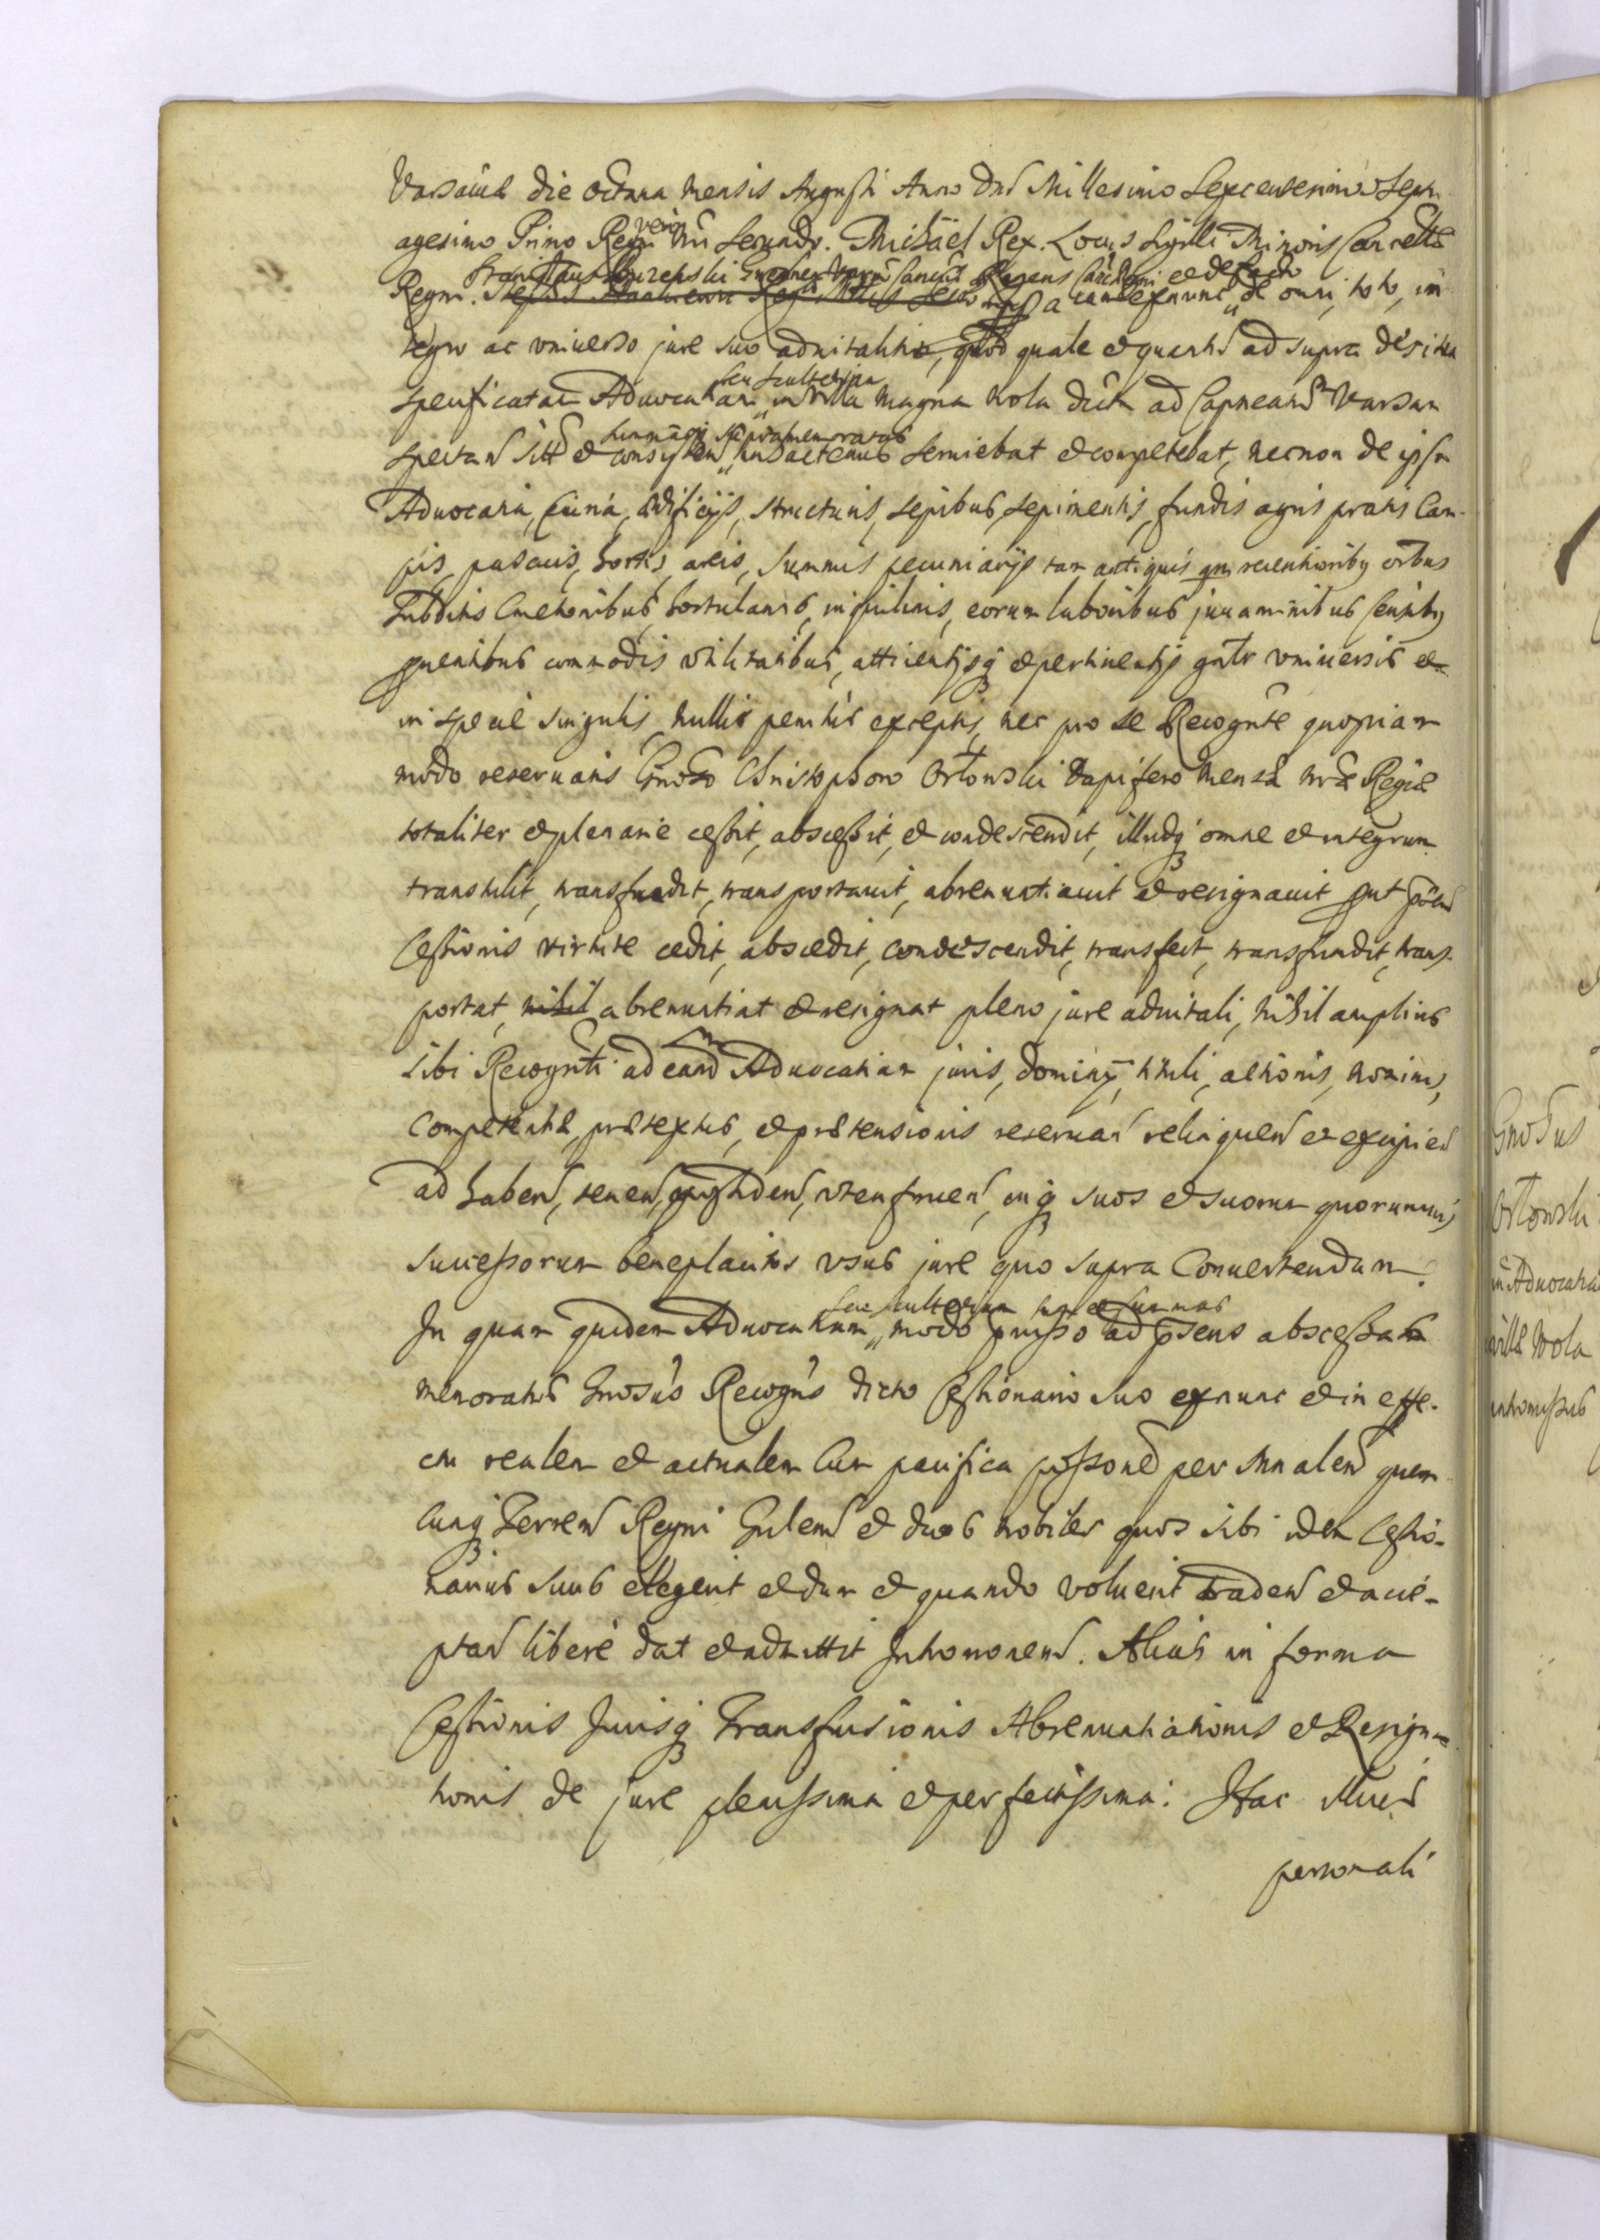 Varsaviae die octaua Mensis Augusti Anno Dni Millesimo Sexcentesimo Septu-
agesimo Primo Regni vero nri Secundo. Michaël Rex. Locus Sigilli Minoris Cancellae
Regni. Stanislaus Regens Canc Regni et de facto
ex nunc de omni, toto, in
tegro ac vniuerso jure suo aduitalitio, quod quale et quantu ad supra de situ
specificatam Aduocatiam seu Scultetiam in Villa Magna Wola dicta ad Capneatu Varsau
spectan sitt et consisten hactenus seruiebat et competebat, necnon de ipsa
Aduocatia, Curia, aedificijs, structuris, sepibus, sepimentis, fundis agris pratis Cam-
pis, pascuis, hortis, areis, Summis pecuniarijs tam antiquis qm recentioriby orbus
Subditis Cmethonibus, hortulanis, inquilinis, eorum laboribus juuaminibus Censiby
prouentibus commodis vtilitatibus, attinentijsq et pertinentijs gnlr vniuersis et
in specie singulis, nullis penitus exceptis, nec pro se Recognte quopiam
modo reseruatis Gnoso Christophoro Orłowski Dapifero Mensae nrae Regiae
totaliter et plenarie cessit, abscessit, et condescendit, illudq omne et integrum
transtulit, transfudit, transportauit, abrenuntiauit et resignauit prout pnti
Cessionis virtute cedit, abscedit, condescendit, transfert, transfundit, trans-
portat, nihil abrenuntiat et resignat pleno jure aduitali, nihil amplius
sibi Recognti ad eand Aduocatiam juris, dominij, tituli, actionis, nominis,
Competentiae, praetextus, et praetensionis reseruan relinquen et excipien
ad haben, tenen, vten fruen, inq suos et suorum quorumuis
successorum beneplacitos vsus jure quo supra Conuertendam.
In quam quidem Aduocatiam seu Scultetiam modo praemisso ad praesens abscessam
memoratus Gnosus Recogns dicto Cessionario suo exnunc et in effe-
ctu realem et actualem Cum pacifica possone per Mnalem quem-
cunq Terren Regni Gnlem et duos nobiles quos sibi idem Cessio-
narius suus elegerit et dum et quando voluerit traden et acce-
ptan libere dat et admittit Intromonem. Alias in forma
Cessionis Jurisq Transfusionis Abrenuntiationis et Resigna-
tionis de jure plenissima et perfectissima: Hac
personali
Gnosus
Orłowski
in Aduocatia
villae Wola
intromissus